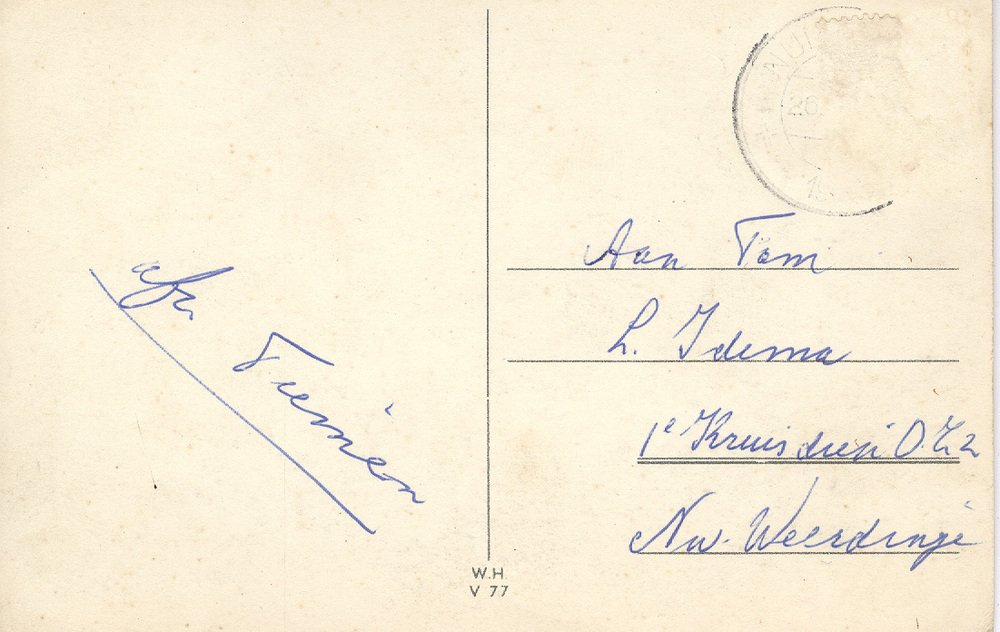 afz
Tiemen
Aan Fam
L. Idema
1e Kruisdiep O.Z. 2
Nw. Weerdinge
W.H.
V 77
26